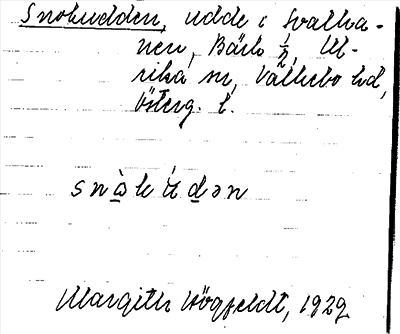 Snokudden, udde i Svalha-
nen, Bäck ½, Ul-
rika sn, Valkebo hd,
Österg. l.
snò̲kùd̲ən
Margith Högfeldt, 1929